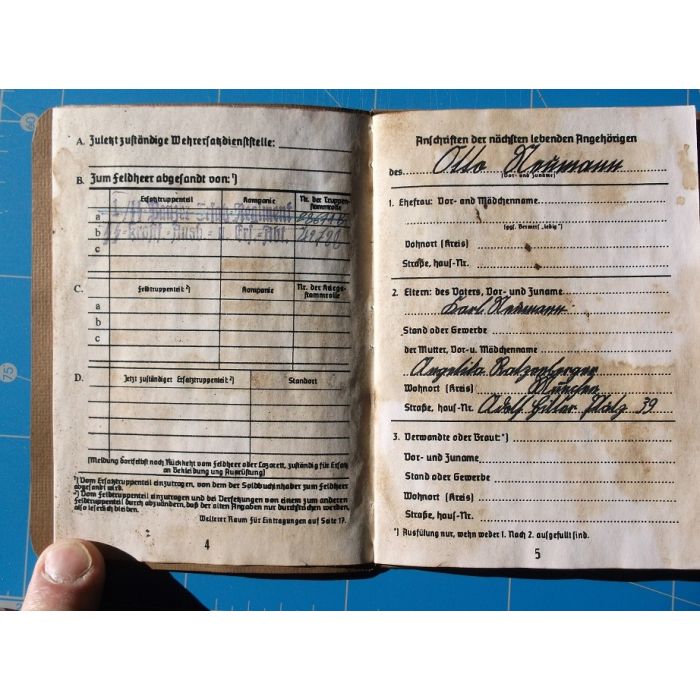 A. Zuletzt zuständige Wehrersatzdienststelle:
B. Zum Feldheer abgesandt von:¹)
Ersatztruppenteil Kompanie Nr. der Truppenstammrolle
a
b SS-Kraftf.-Ausb.- u. Ers.-Abt.
c
C. Feldtruppenteil ²) Kompanie Nr. der Kriegsstammrolle
a
b
c
D. Jetzt zuständiger Ersatztruppenteil ²) Standort
(Meldung dortselbst nach Rückkehr vom Feldheer oder Lazarett, zuständig für Ersatz
an Bekleidung und Ausrüstung)
¹) Vom Ersatztruppenteil einzutragen, von dem der Soldbuchinhaber zum Feldheer
abgesandt wird.
²) Vom Feldtruppenteil einzutragen und bei Versetzungen von einem zum anderen
Feldtruppenteil durch abzuändern, daß der alten Angaben nur durchstrichen werden,
also leserlich bleiben.
Weiterer Raum für Eintragungen auf Seite 17.
4
Anschriften der nächsten lebenden Angehörigen
des Otto Neumann
(Vor- und Zuname)
1. Ehefrau: Vor- und Mädchenname
(ggf. Vermerk „ledig")
Wohnort (Kreis)
Straße, Haus-Nr.
2. Eltern: des Vaters, Vor- und Zuname
Karl Neumann
Stand oder Gewerbe
der Mutter, Vor- u. Mädchenname
Angelika Ratzenberger
Wohnort (Kreis) München
Straße, Haus-Nr. Adolf Hitler Platz 39
3. Verwandte oder Braut:*)
Vor- und Zuname
Stand oder Gewerbe
Wohnort (Kreis)
Straße, Haus-Nr.
*) Ausfüllung nur, wenn weder 1. Noch 2. ausgefüllt sind.
5